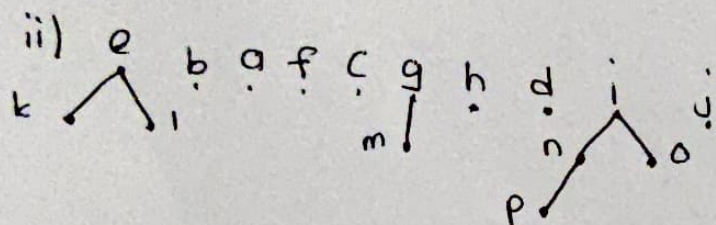 ii) e b a f c g h d i j
k l m n o
p